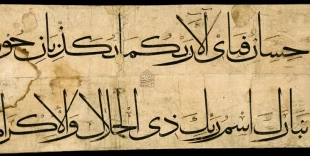 حسان فبای آلاء ربکما تکذبان حور
تبارك اسم ربك ذی الجلال والاکرام